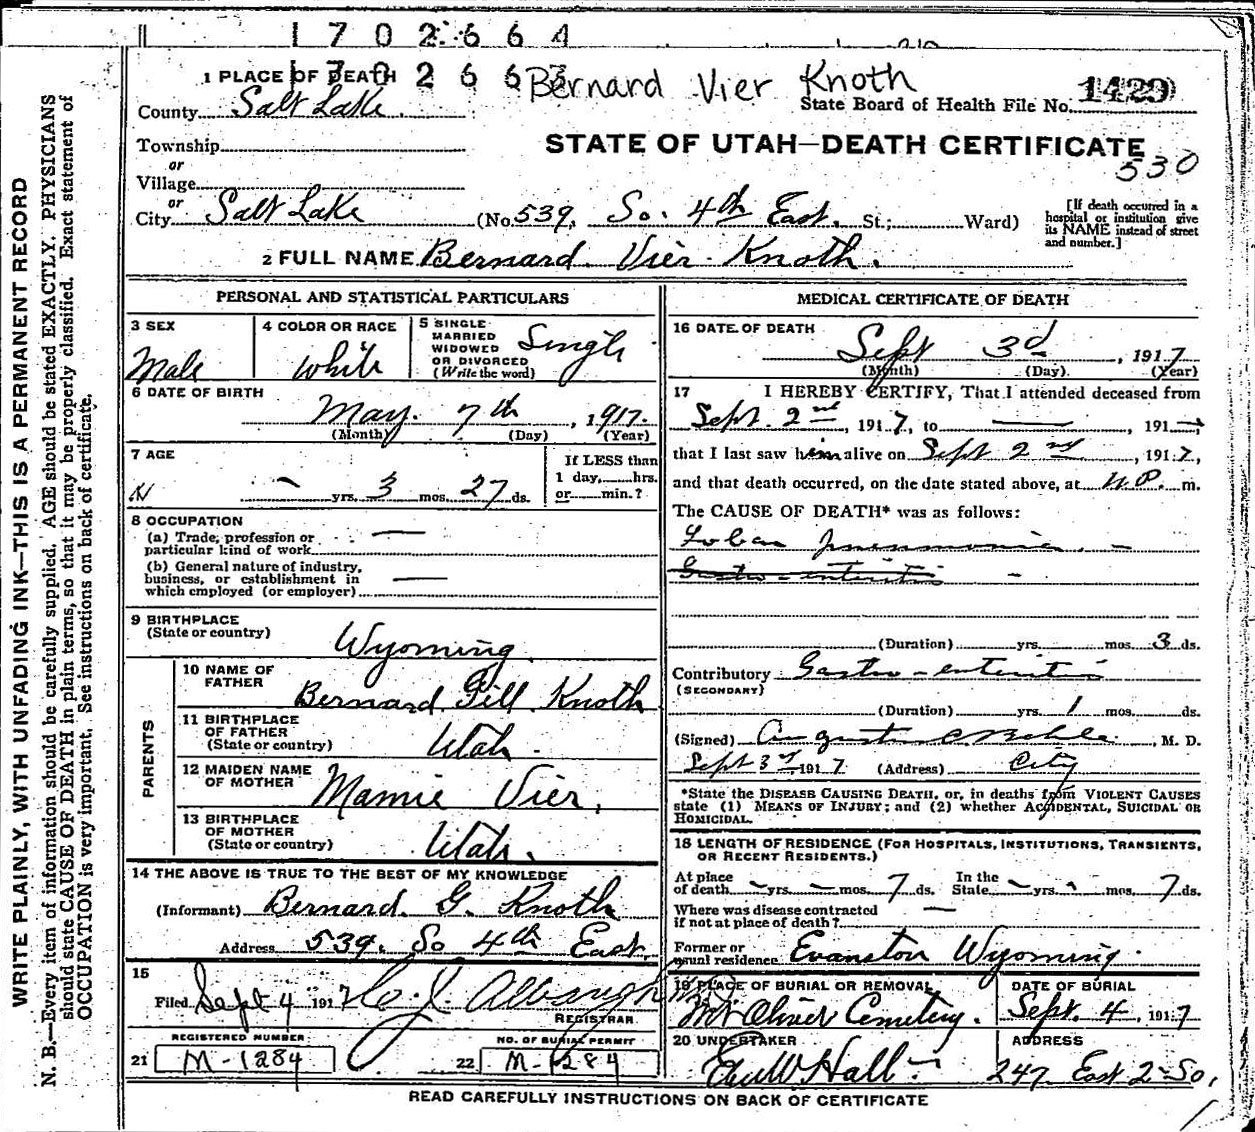 1702664
170266
Bernard Vier Knoth
1 PLACE OF DEATH
County Salt Lake.
State Board of Health File No. 1429
Township
STATE OF UTAH—DEATH CERTIFICATE
530
or
Village
or
City Salt Lake (No. 539, So. 4th East. St.; Ward)
[If death occurred in a hospital or institution give its NAME instead of street and number.]
2 FULL NAME Bernard Vier Knoth.
PERSONAL AND STATISTICAL PARTICULARS
3 SEX
Male
4 COLOR OR RACE
White
5 SINGLE MARRIED WIDOWED OR DIVORCED (Write the word)
Single
6 DATE OF BIRTH
May. 7th, 1917.
(Month) (Day) (Year)
7 AGE
— yrs. 3 mos. 27 ds.
If LESS than 1 day, hrs. or min.?
8 OCCUPATION
(a) Trade, profession or particular kind of work —
(b) General nature of industry, business, or establishment in which employed (or employer) —
9 BIRTHPLACE
(State or country) Wyoming.
PARENTS
10 NAME OF FATHER
Bernard Gill Knoth
11 BIRTHPLACE OF FATHER
(State or country) Utah.
12 MAIDEN NAME OF MOTHER
Mamie Vier,
13 BIRTHPLACE OF MOTHER
(State or country) Utah.
14 THE ABOVE IS TRUE TO THE BEST OF MY KNOWLEDGE
(Informant) Bernard. G. Knoth
Address 539. So 4th East.
15
Filed Sept 4 1917
REGISTRAR
REGISTERED NUMBER
21 M-1284
NO. OF BURIAL PERMIT
22 M-1284
MEDICAL CERTIFICATE OF DEATH
16 DATE OF DEATH
Sept 3d, 1917
(Month) (Day) (Year)
17 I HEREBY CERTIFY, That I attended deceased from
Sept. 2nd, 1917, to —, 191—,
that I last saw him alive on Sept 2nd, 1917,
and that death occurred, on the date stated above, at m.
The CAUSE OF DEATH* was as follows:
Lobar pneumonia. —
Gastro-enteritis —
(Duration) yrs. mos. 3 ds.
Contributory Gastro-enteritis
(SECONDARY)
(Duration) yrs. 1 mos. ds.
(Signed) , M. D.
Sept 3d 1917 (Address) City
*State the DISEASE CAUSING DEATH, or, in deaths from VIOLENT CAUSES
state (1) MEANS OF INJURY; and (2) whether ACCIDENTAL, SUICIDAL OR
HOMICIDAL.
18 LENGTH OF RESIDENCE (FOR HOSPITALS, INSTITUTIONS, TRANSIENTS,
OR RECENT RESIDENTS.)
At place of death — yrs. — mos. 7 ds. In the State — yrs. mos. 7 ds.
Where was disease contracted if not at place of death? —
Former or usual residence Evanston Wyoming.
19 PLACE OF BURIAL OR REMOVAL
Mt Olivet Cemetery.
DATE OF BURIAL
Sept. 4, 1917
20 UNDERTAKER
Hall
ADDRESS
247 East 2 So,
READ CAREFULLY INSTRUCTIONS ON BACK OF CERTIFICATE
WRITE PLAINLY, WITH UNFADING INK—THIS IS A PERMANENT RECORD
N. B.—Every item of information should be carefully supplied. AGE should be stated EXACTLY. PHYSICIANS
should state CAUSE OF DEATH in plain terms, so that it may be properly classified. Exact statement of
OCCUPATION is very important. See instructions on back of certificate.